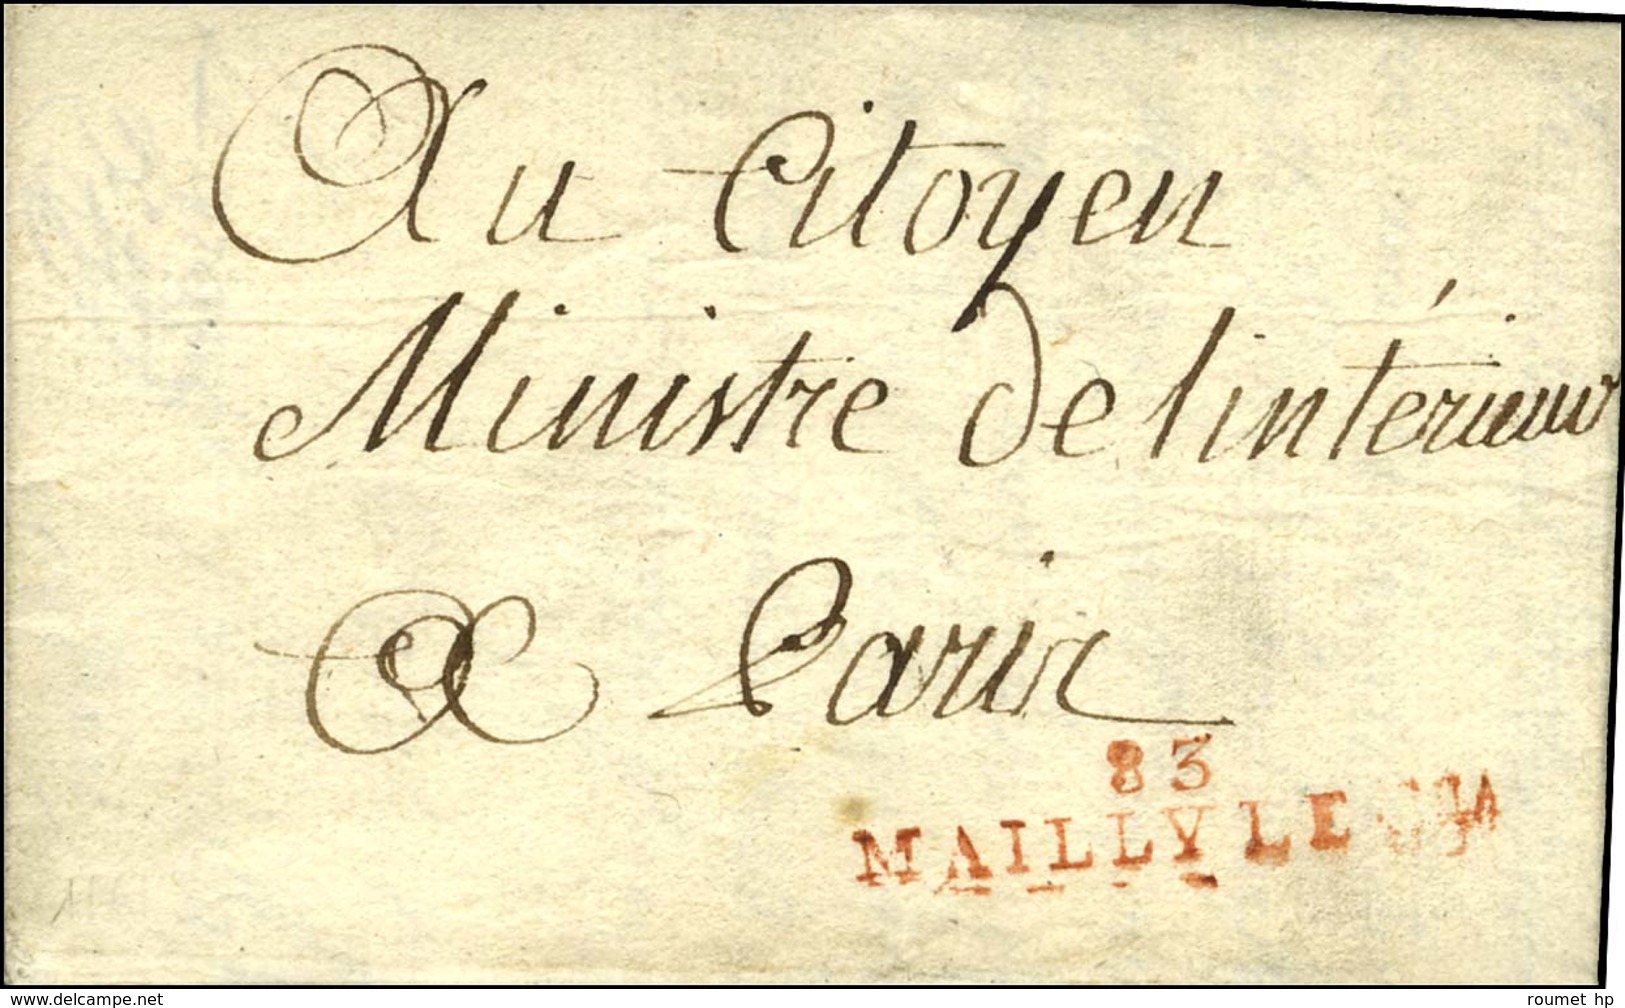 Au Citoyen
Ministre de lintérieur
A Paris
83
MAILLY LE
www.delcampe.net
roumet hp